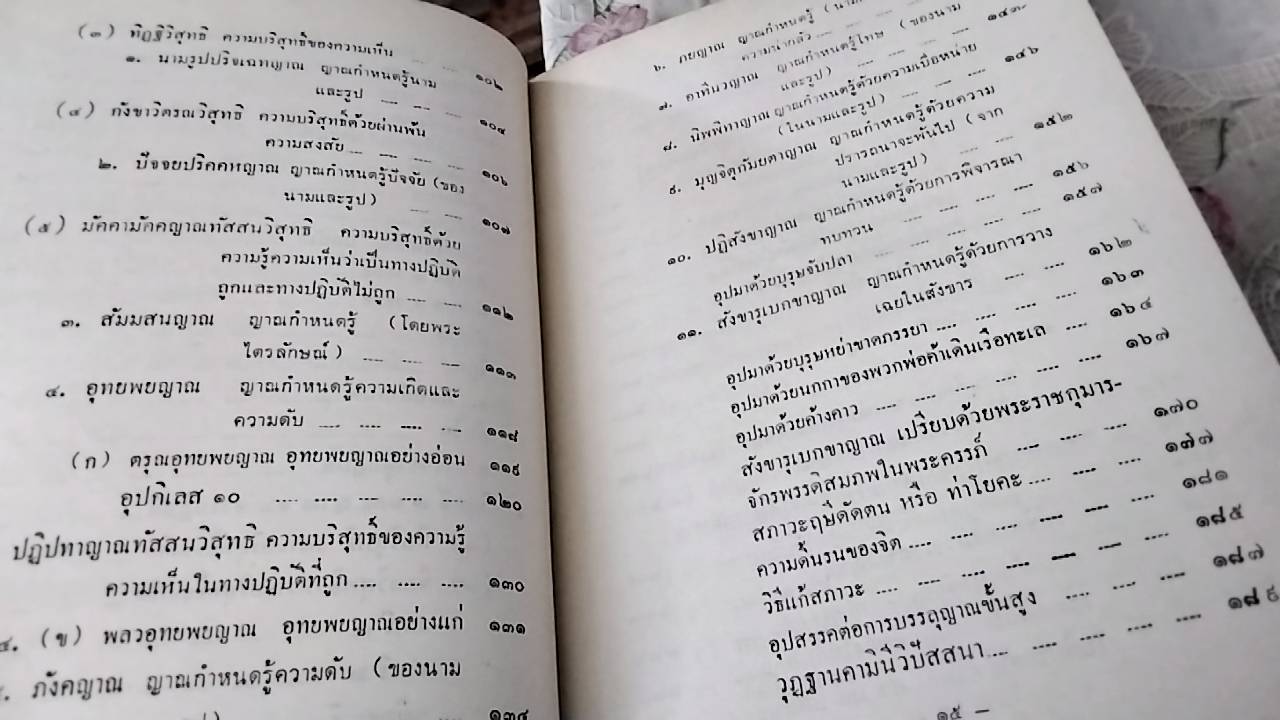 (๓) ทิฏฐิวิสุทธิ ความบริสุทธิ์ของความเห็น
๑. นามรูปปริจเฉทญาณ ญาณกำหนดรู้นาม
และรูป .... .... ๑๐๒
(๔) กังขาวิตรณวิสุทธิ ความบริสุทธิ์ด้วยผ่านพ้น
ความสงสัย .... .... .... .... ๑๐๔
๒. ปัจจยปริคคหญาณ ญาณกำหนดรู้ปัจจัย (ของ ๑๐๖
นามและรูป) .... .... ๑๐๗
(๕) มัคคามัคคญาณทัสสนวิสุทธิ ความบริสุทธิ์ด้วย
ความรู้ความเห็นว่าเป็นทางปฏิบัติ
ถูกและทางปฏิบัติไม่ถูก .... .... ๑๑๒
๓. สัมมสนญาณ ญาณกำหนดรู้ (โดยพระ
ไตรลักษณ์) .... .... .... ๑๑๓
๔. อุทยพยญาณ ญาณกำหนดรู้ความเกิดและ
ความดับ .... .... .... .... ๑๑๘
(ก) ตรุณอุทยพยญาณ อุทยพยญาณอย่างอ่อน ๑๑๙
อุปกิเลส ๑๐ .... .... .... .... .... ๑๒๐
ปฏิปทาญาณทัสสนวิสุทธิ ความบริสุทธิ์ของความรู้
ความเห็นในทางปฏิบัติที่ถูก .... .... .... ๑๓๐
๔. (ข) พลวอุทยพยญาณ อุทยพยญาณอย่างแก่ ๑๓๑
. ภังคญาณ ญาณกำหนดรู้ความดับ (ของนาม
๑๓๔
๖. ภยญาณ ญาณกำหนดรู้
ความน่ากลัว .... ๑๔๓
๗. อาทีนวญาณ ญาณกำหนดรู้โทษ (ของนาม
และรูป) .... .... .... ๑๔๖
๘. นิพพิทาญาณ ญาณกำหนดรู้ด้วยความเบื่อหน่าย
(ในนามและรูป) .... .... ๑๕๒
๙. มุญจิตุกัมยตาญาณ ญาณกำหนดรู้ด้วยความ
ปรารถนาจะพ้นไป (จาก
นามและรูป) .... .... .... ๑๕๖
๑๐. ปฏิสังขาญาณ ญาณกำหนดรู้ด้วยการพิจารณา
ทบทวน .... .... .... .... ๑๕๗
อุปมาด้วยบุรุษจับปลา .... .... .... .... ๑๖๒
๑๑. สังขารุเบกขาญาณ ญาณกำหนดรู้ด้วยการวาง
เฉยในสังขาร .... .... ๑๖๓
อุปมาด้วยบุรุษหย่าขาดภรรยา .... .... .... .... ๑๖๔
อุปมาด้วยนกกาของพวกพ่อค้าเดินเรือทะเล .... ๑๖๗
อุปมาด้วยค้างคาว .... .... .... .... .... ๑๗๐
สังขารุเบกขาญาณ เปรียบด้วยพระราชกุมาร-
จักรพรรดิสมภพในพระครรภ์ .... .... .... ๑๗๗
สภาวะฤษีดัดตน หรือ ท่าโยคะ .... .... .... ๑๘๑
ความดิ้นรนของจิต .... .... .... .... .... .... ๑๘๕
วิธีแก้สภาวะ .... .... .... .... .... .... .... ๑๘๗
อุปสรรคต่อการบรรลุญาณขั้นสูง .... .... .... ๑๘๙
วุฏฐานคามินีวิปัสสนา .... .... .... .... ....
๑๕ –